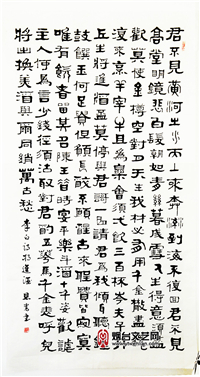 君不見黃河之水天上來奔流到海不復回君不見
高堂明鏡悲白髮朝如青絲暮成雪人生得意須盡
歡莫使金樽空對月天生我材必有用千金散盡
還復來烹羊宰牛且為樂會須一飲三百杯岑夫子
丹丘生將進酒杯莫停與君歌一曲請君為我傾耳聽鐘
鼓饌玉何足貴但願長醉不願醒古來聖賢皆寂寞
唯有飲者留其名陳王昔時宴平樂斗酒十千恣歡謔
主人何為言少錢徑須沽取對君酌五花馬千金裘呼兒
將出換美酒與爾同銷萬古愁
李白詩將進酒
烟台文艺网